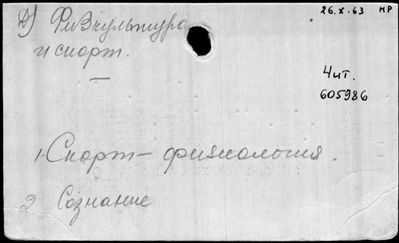 26.X.63 МР
2) Физкультура
и спорт.
—
Чит.
605986
1. Спорт - физиология.
2 Сознание